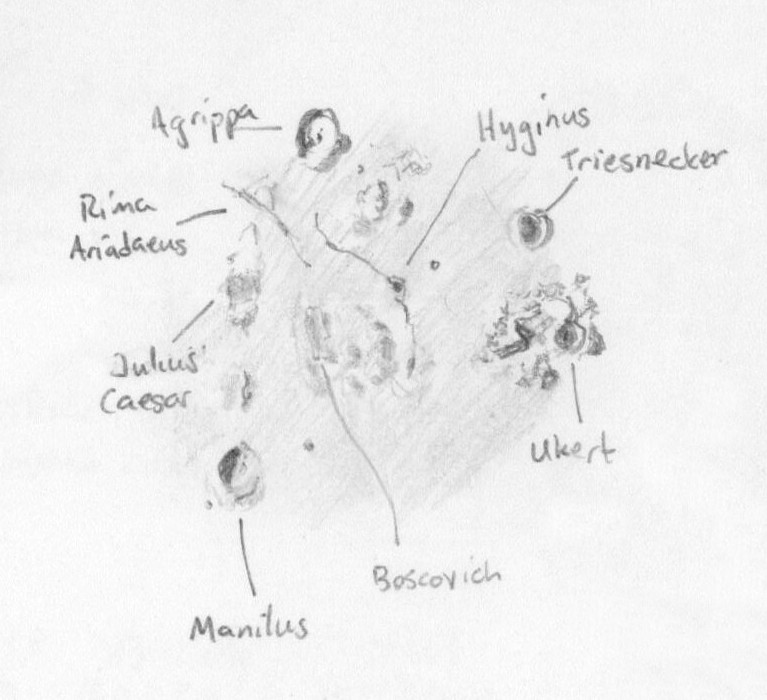 Agrippa
Hyginus
Triesnecker
Rima
Ariadaeus
Julius
Caesar
Ukert
Boscovich
Manilus